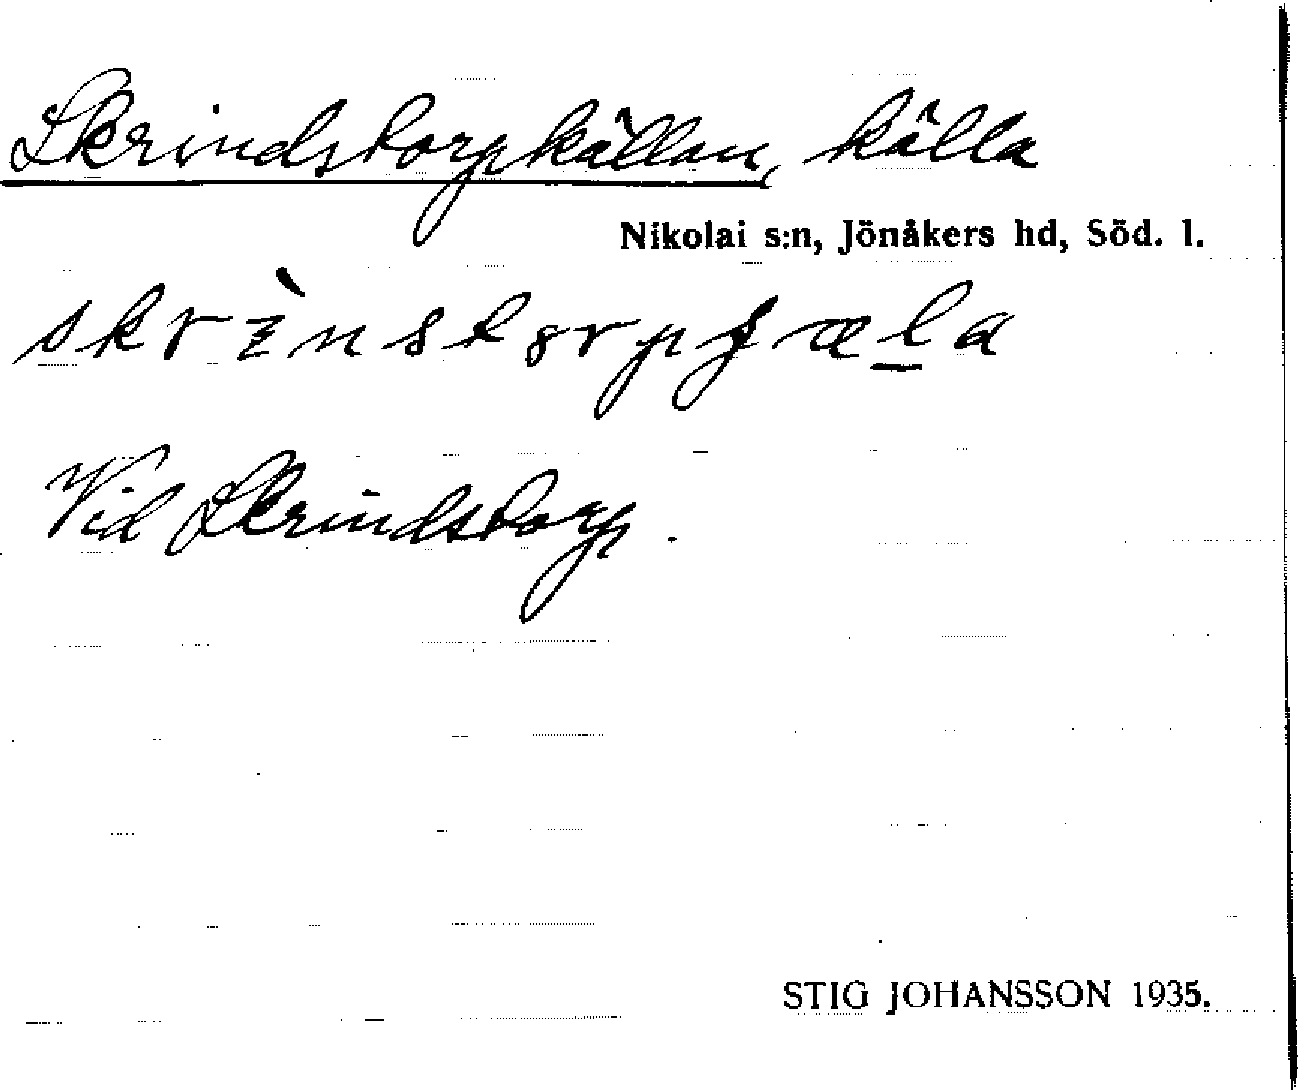 Skrindstorpkällan, källa
Nikolai s:n, Jönåkers hd, Söd. l.
Vid Skrindstorp.
STIG JOHANSSON 1935.